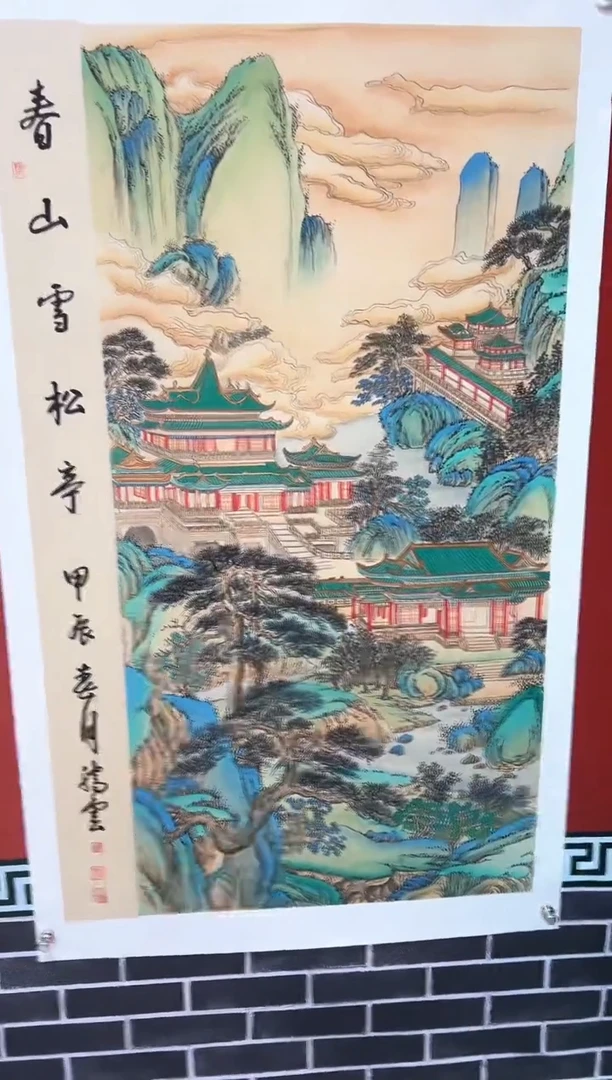 春山雪松亭
甲辰春月